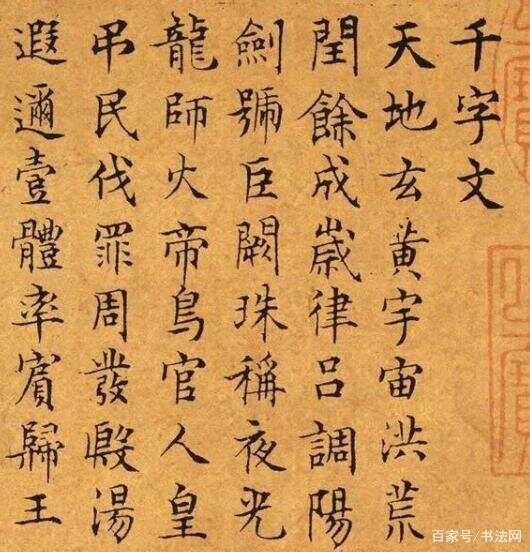 千字文
天地玄黃宇宙洪荒
閏餘成歲律呂調陽
劍號巨闕珠稱夜光
龍師火帝鳥官人皇
吊民伐罪周發殷湯
遐邇壹體率賓歸王
百家号/书法网